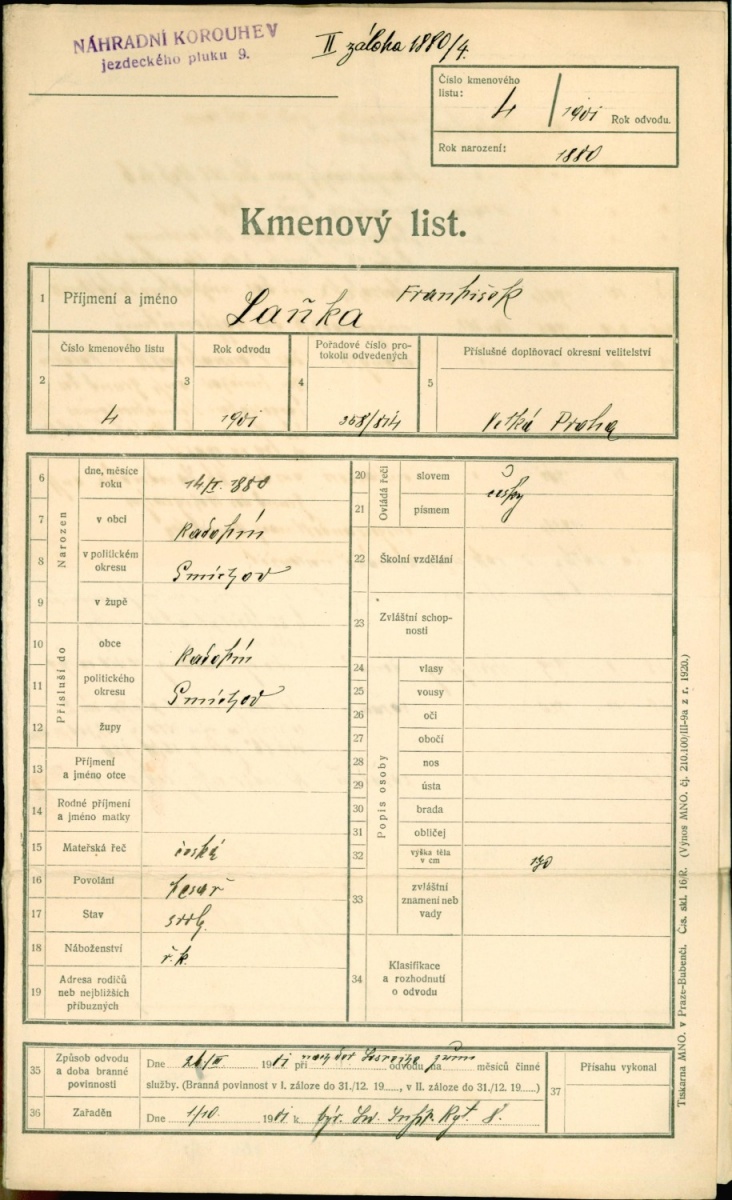 NÁHRADNÍ KOROUHEV
jezdeckého pluku 9.
II záloha 1880/4.
Číslo kmenového listu: 4 / 1901 Rok odvodu.
Rok narození: 1880
Kmenový list.
1 Příjmení a jméno Laňka František
2 Číslo kmenového listu 4
3 Rok odvodu 1901
4 Pořadové číslo protokolu odvedených
5 Příslušné doplňovací okresní velitelství Velká Praha
Narozen
6 dne, měsíce roku 1880
7 v obci Radotín
8 v politickém okresu Smíchov
9 v župě
Přísluší do
10 obce Radotín
11 politického okresu Smíchov
12 župy
13 Příjmení a jméno otce
14 Rodné příjmení a jméno matky
15 Mateřská řeč česká
16 Povolání tesař
17 Stav svob.
18 Náboženství ř. k.
19 Adresa rodičů neb nejbližších příbuzných
Ovládá řeči
20 slovem
21 písmem
česky
22 Školní vzdělání
23 Zvláštní schopnosti
Popis osoby
24 vlasy
25 vousy
26 oči
27 obočí
28 nos
29 ústa
30 brada
31 obličej
32 výška těla v cm 170
33 zvláštní znamení neb vady
34 Klasifikace a rozhodnutí o odvodu
35 Způsob odvodu a doba branné povinnosti
Dne 1901 při odvodu na měsíců činné
služby. (Branná povinnost v I. záloze do 31./12. 19......, v II. záloze do 31./12. 19......)
36 Zařaděn Dne 1/10 1901 k Rgt. 8.
37 Přísahu vykonal
Tiskárna MNO. v Praze-Bubenči. Čís. skl. 16/R. (Výnos MNO. čj. 210.100/III-9a z r. 1920.)